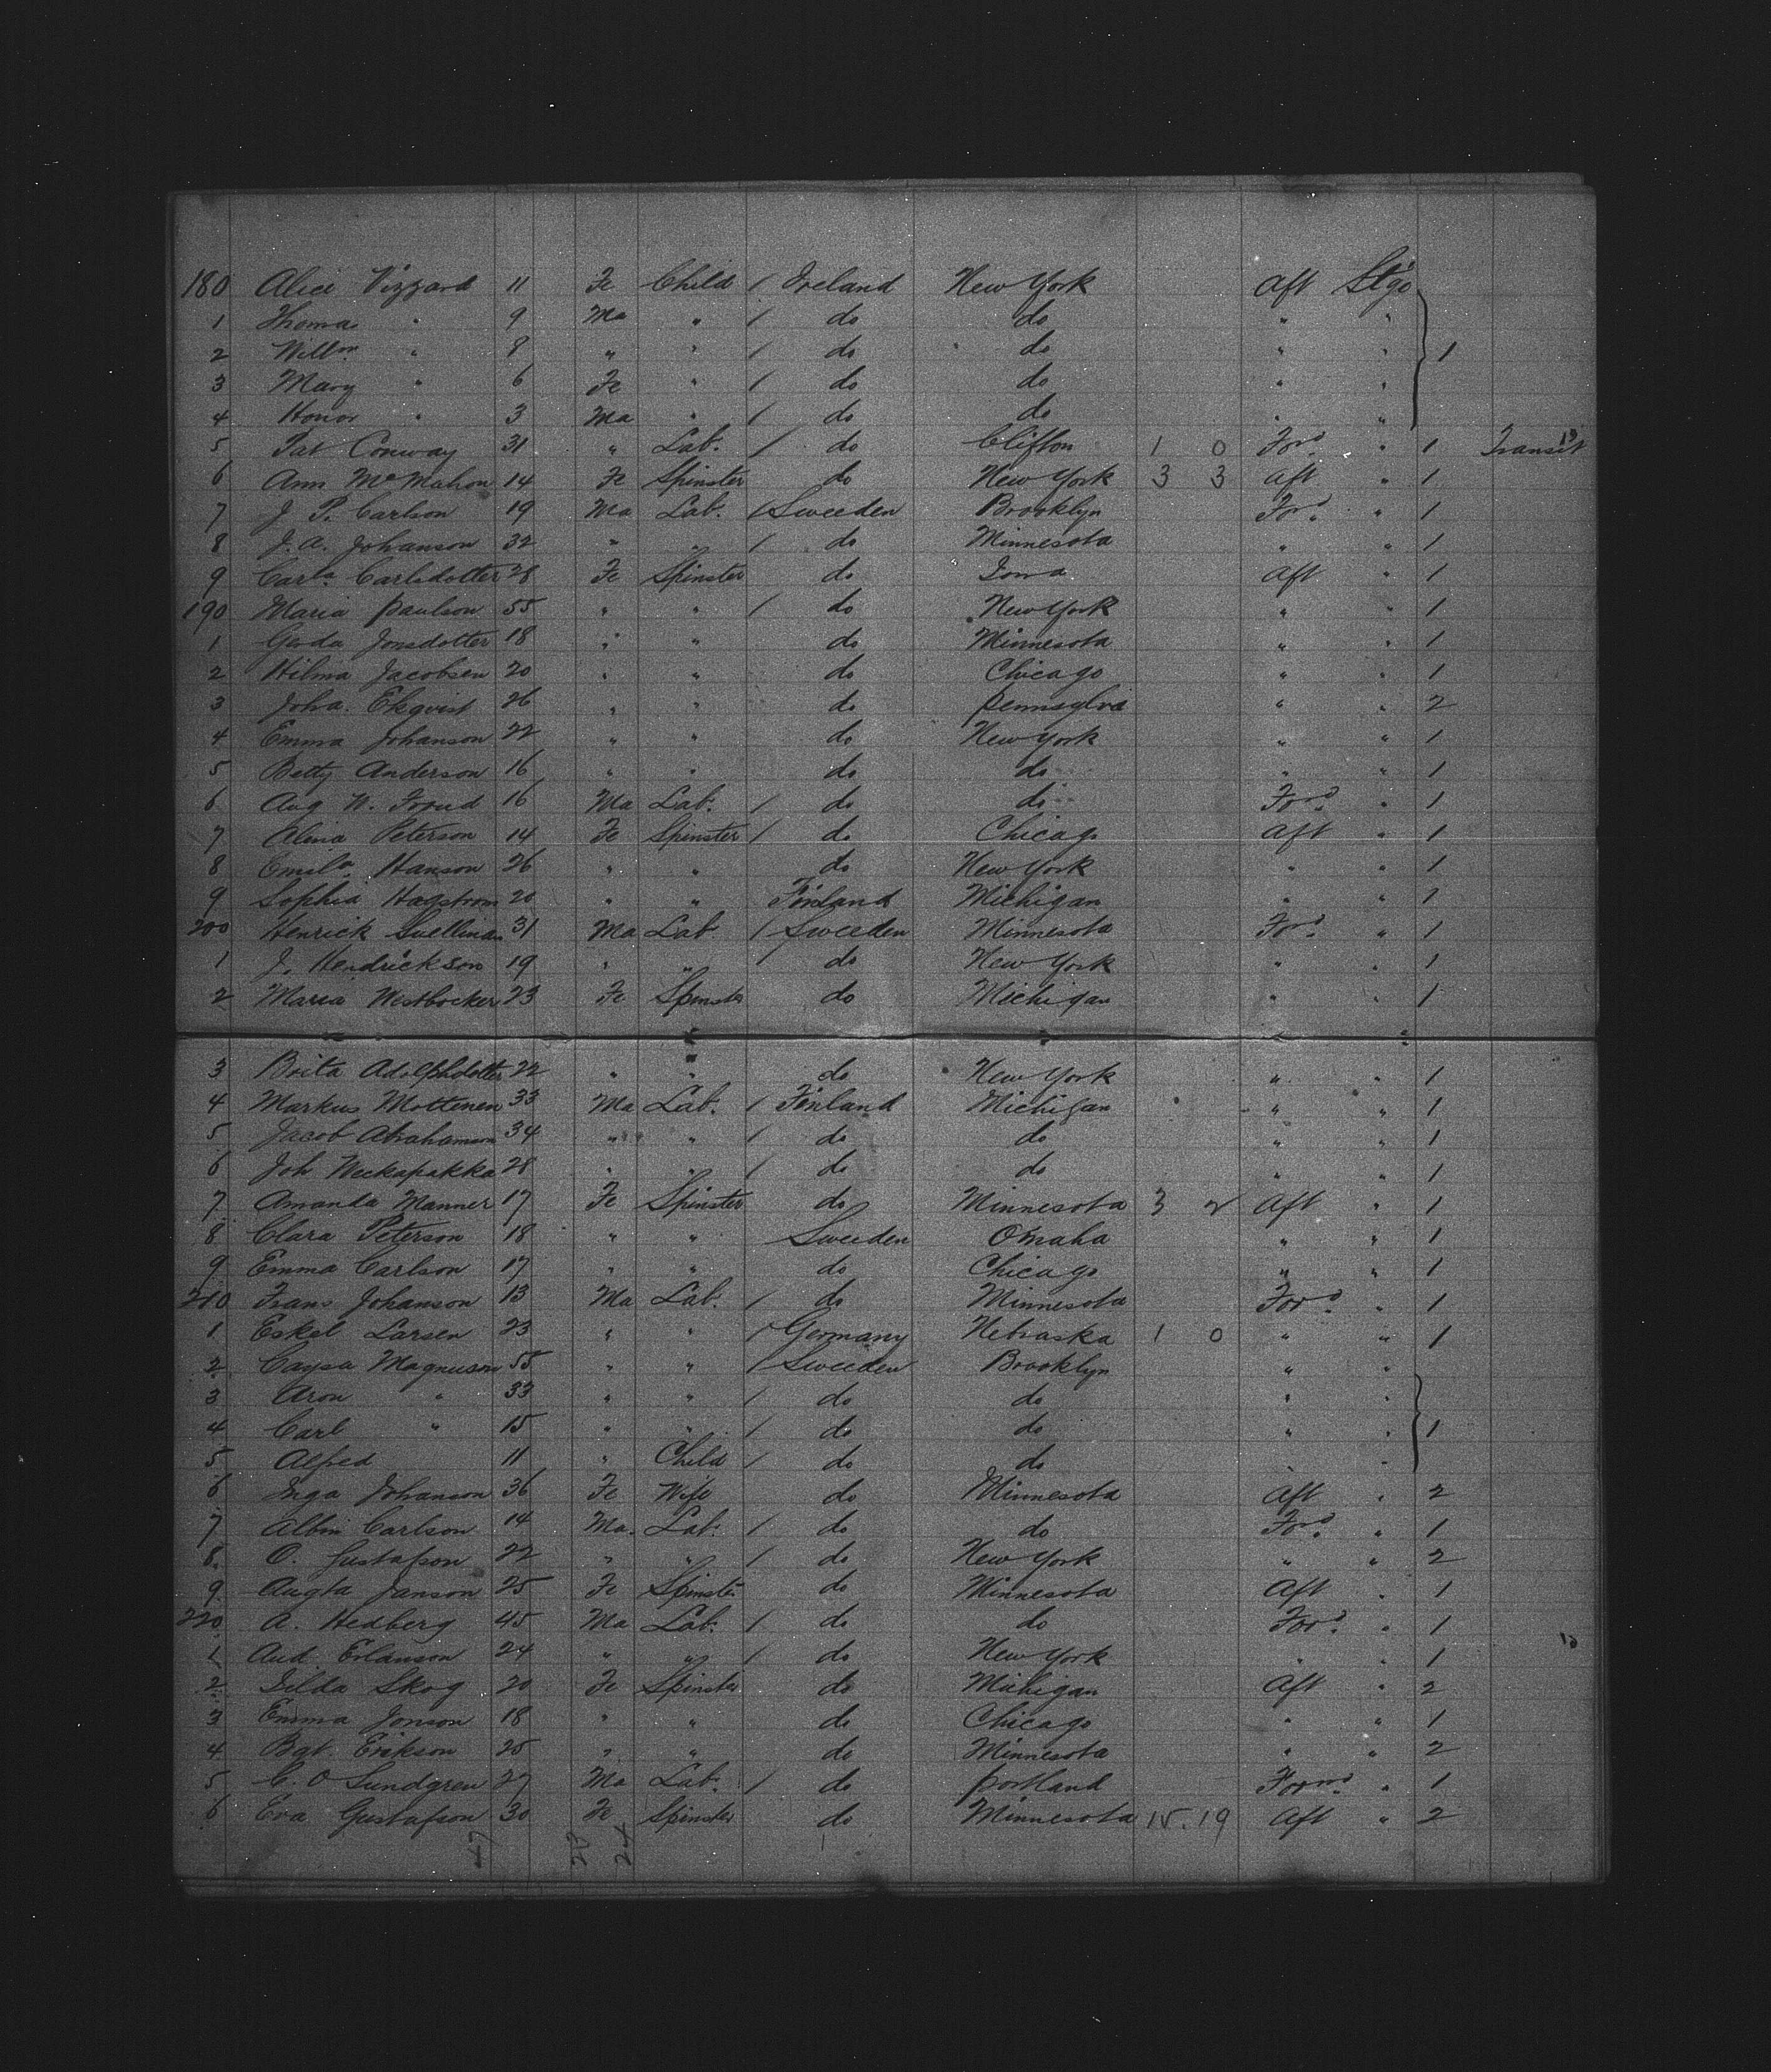 180 Alice Vizzard 11 Fe Child / Ireland New York Aft Stge
1 Thomas " 9 Ma " / do do " "
2 Willm " 8 " " / do do " " 1
3 Mary " 6 Fe " / do do " "
4 Honor " 3 Ma " / do do " "
5 Pat Conway 31 " Lab. / do Clifton 1 0 Ford " 1 Transit 13
6 Ann McMahon 14 Fe Spinster do New York 3 3 Aft " 1
7 J. P. Carlson 19 Ma Lab. / Sweeden Brooklyn Ford " 1
8 J. A. Johanson 32 " " / do Minnesota " " 1
9 Carla Carlsdotter 28 Fe Spinster do Iowa Aft " 1
190 Maria Paulson 55 " " / do New York " " 1
1 Gerda Jonsdotter 18 " " do Minnesota " " 1
2 Hilma Jacobsen 20 " " do Chicago " " 1
3 Joha. Ekqvist 26 " " do Pennsylva " " 2
4 Emma Johanson 22 " " do New York " " 1
5 Betty Anderson 16 " " do do " " 1
6 Aug W. Froud 16 Ma Lab. / do do Ford " 1
7 Alina Peterson 14 Fe Spinster / do Chicago Aft " 1
8 Emila Hanson 26 " " do New York " " 1
9 Sophia Hagstrom 20 " " Finland Michigan " " 1
200 Henrick 31 Ma Lab. / Sweeden Minnesota Ford " 1
1 J. Hendrickson 19 " " / do New York " " 1
2 Maria Westbocker 23 Fe Spinster do Michigan " " 1
3 Brita Adolphdotter 22 " " do New York " " 1
4 Markus Mottenen 33 Ma Lab. / Finland Michigan " " 1
5 Jacob Abrahamson 34 " " / do do " " 1
6 Joh 28 " " / do do " " 1
7 Amanda Manner 17 Fe Spinster do Minnesota 3 2 Aft " 1
8 Clara Peterson 18 " " Sweeden Omaha " " 1
9 Emma Carlson 17 " " do Chicago " " 1
210 Frans Johanson 13 Ma Lab. / do Minnesota Ford " 1
1 Eskel Larsen 23 " " / Germany Nebraska 1 0 " " 1
2 Caysa Magnuson 55 " " / Sweeden Brooklyn " "
3 Aron " 33 " " / do do " "
4 Carl " 15 " " / do do " " 1
5 Alfred 11 " Child / do do " "
6 Inga Johanson 36 Fe Wife do Minnesota Aft " 2
7 Albin Carlson 14 Ma. Lab. / do do Ford " 1
8 O. Gustafson 22 " " / do New York " " 2
9 Augta Janson 25 Fe Spinster do Minnesota Aft " 1
220 A. Hedberg 45 Ma Lab. / do do Ford " 1
1 Aud Erlanson 24 " " / do New York " " 1
2 Hilda Skog 20 Fe Spinster do Michigan Aft " 2
3 Emma Jonson 18 " " do Chicago " " 1
4 Bgt. Erikson 25 " " do Minnesota " " 2
5 C. O Sundgren 27 Ma Lab. / do Portland Forwd " 1
6 Eva Gustafson 30 Fe Spinster do Minnesota 15. 19 Aft " 2
47 23 24